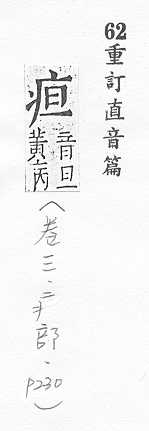 62重訂直音篇
疸
音旦
黃病
(卷三.疒部.P230)